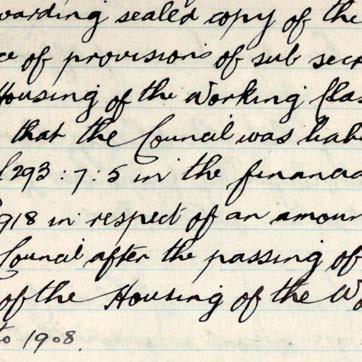 warding sealed copy of the
ce of provisions of sub sec
Housing of the Working Clas
that the Council was liabl
£293 : 7 : 5 in the financia
1918 in respect of an amoun
Council after the passing of
of the Housing of the Wo
to 1908.